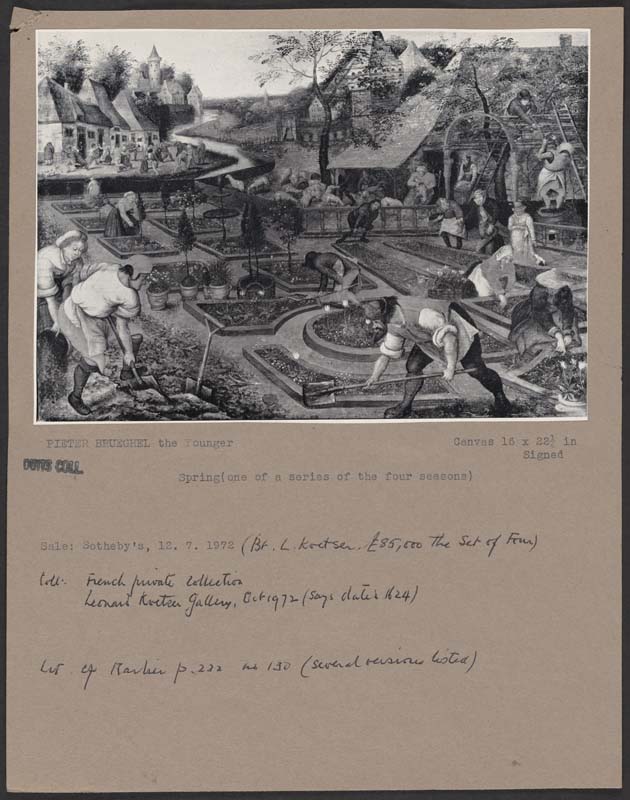 PIETER BRUEGHEL the Younger
Canvas 16 x 22½ in
Signed
WITTS COLL.
Spring(one of a series of the four seasons)
Sale: Sotheby's, 12. 7. 1972 (Bt. L. Koetser. £85,000 The Set of Four)
Coll: French private collection
Leonard Koetser Gallery, Oct 1972 (says dated 1624)
Lit. cf Marlier p. 222 no 130 (several versions listed)